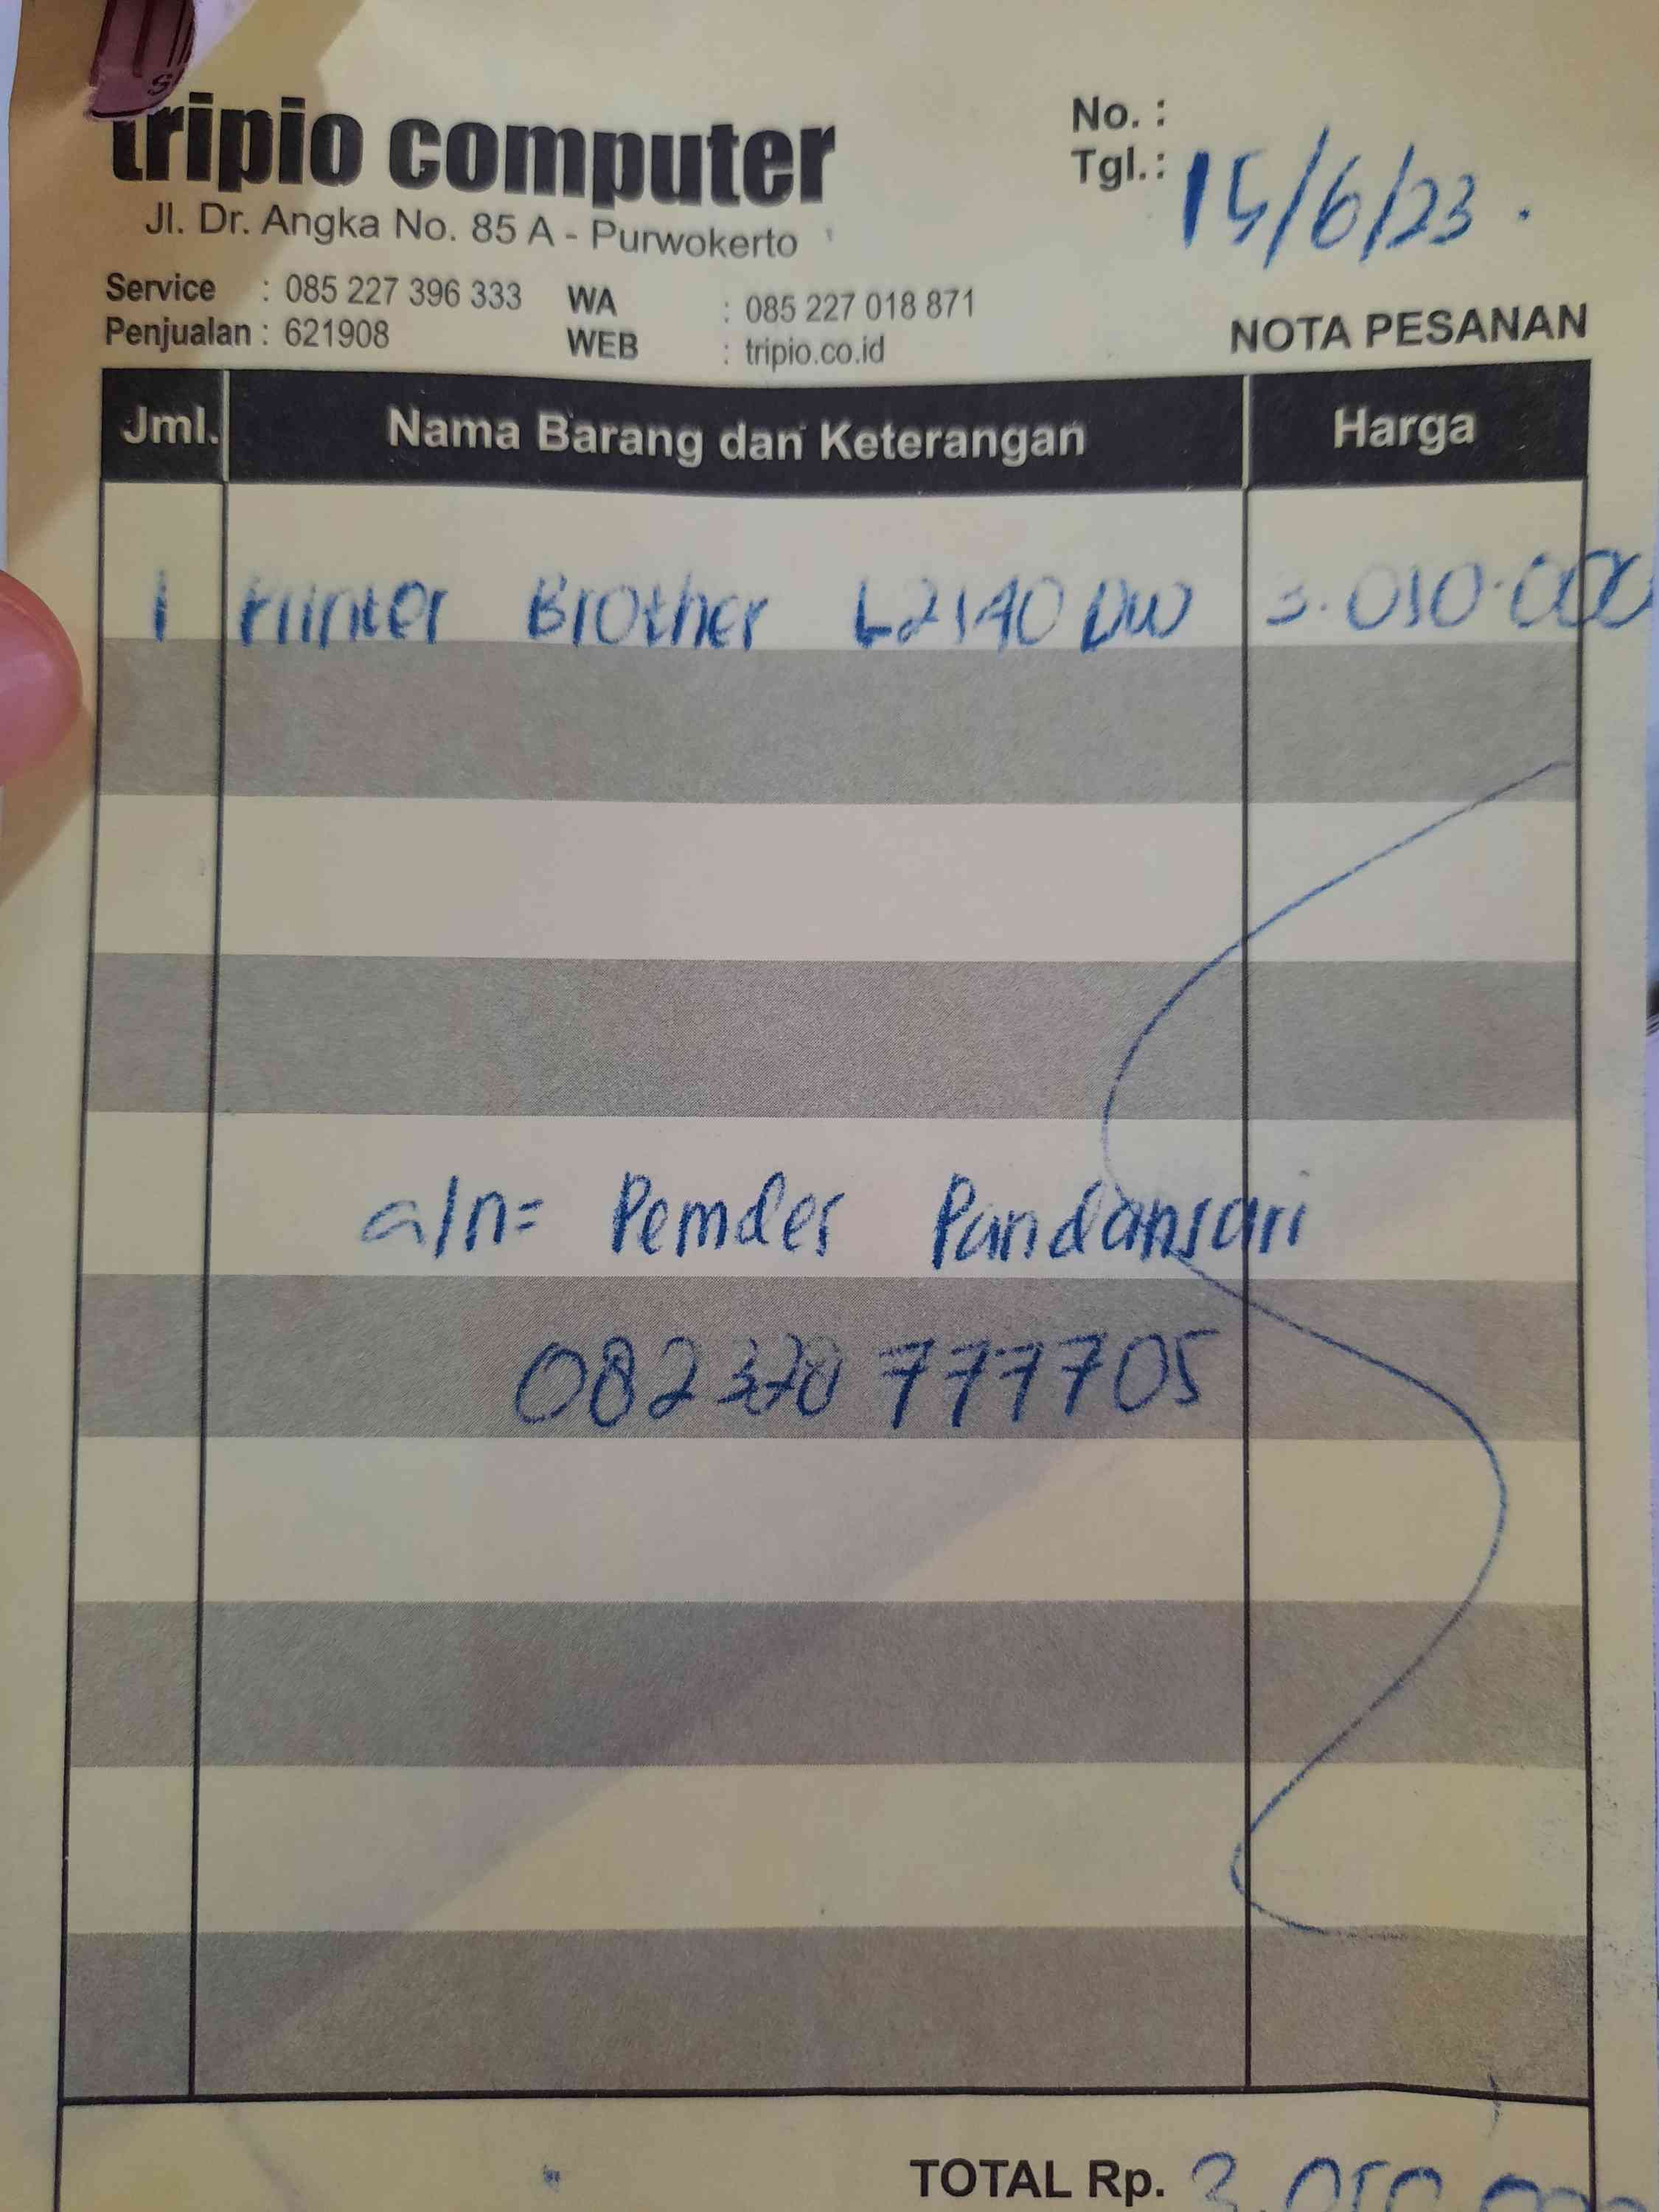 tripio computer
Jl. Dr. Angka No. 85 A - Purwokerto
No. :
Tgl. : 15/6/23.
Service : 085 227 396 333 WA : 085 227 018 871
Penjualan : 621908 WEB : tripio.co.id
NOTA PESANAN
Jml. Nama Barang dan Keterangan Harga
1 Printer Brother L2140 DW
a/n= Pemdes Pandansari
TOTAL Rp.